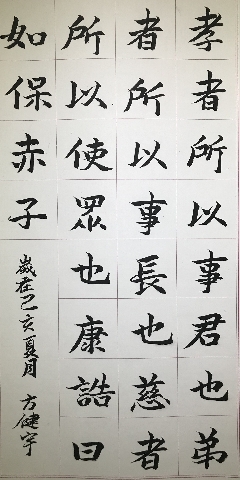 孝者所以事君也弟
者所以事長也慈者
所以使眾也康誥曰
如保赤子
歲在己亥夏月 方健宇